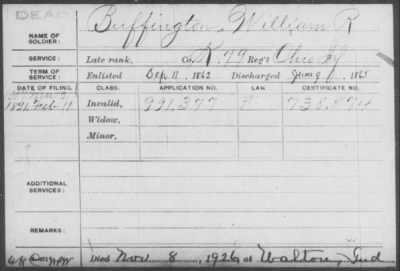 DEAD
NAME OF SOLDIER: Buffington, William R
SERVICE: Late rank, Co. K, 79 Reg't Ohio Inf
TERM OF SERVICE: Enlisted Sep 11, 1862 Discharged June 9, 1865
DATE OF FILING. CLASS. APPLICATION NO. LAW. CERTIFICATE NO.
1891 Feb 11 Invalid, 991,377
Widow,
Minor,
ADDITIONAL SERVICES:
REMARKS:
Died Nov 8, 1926 at Walton, Ind